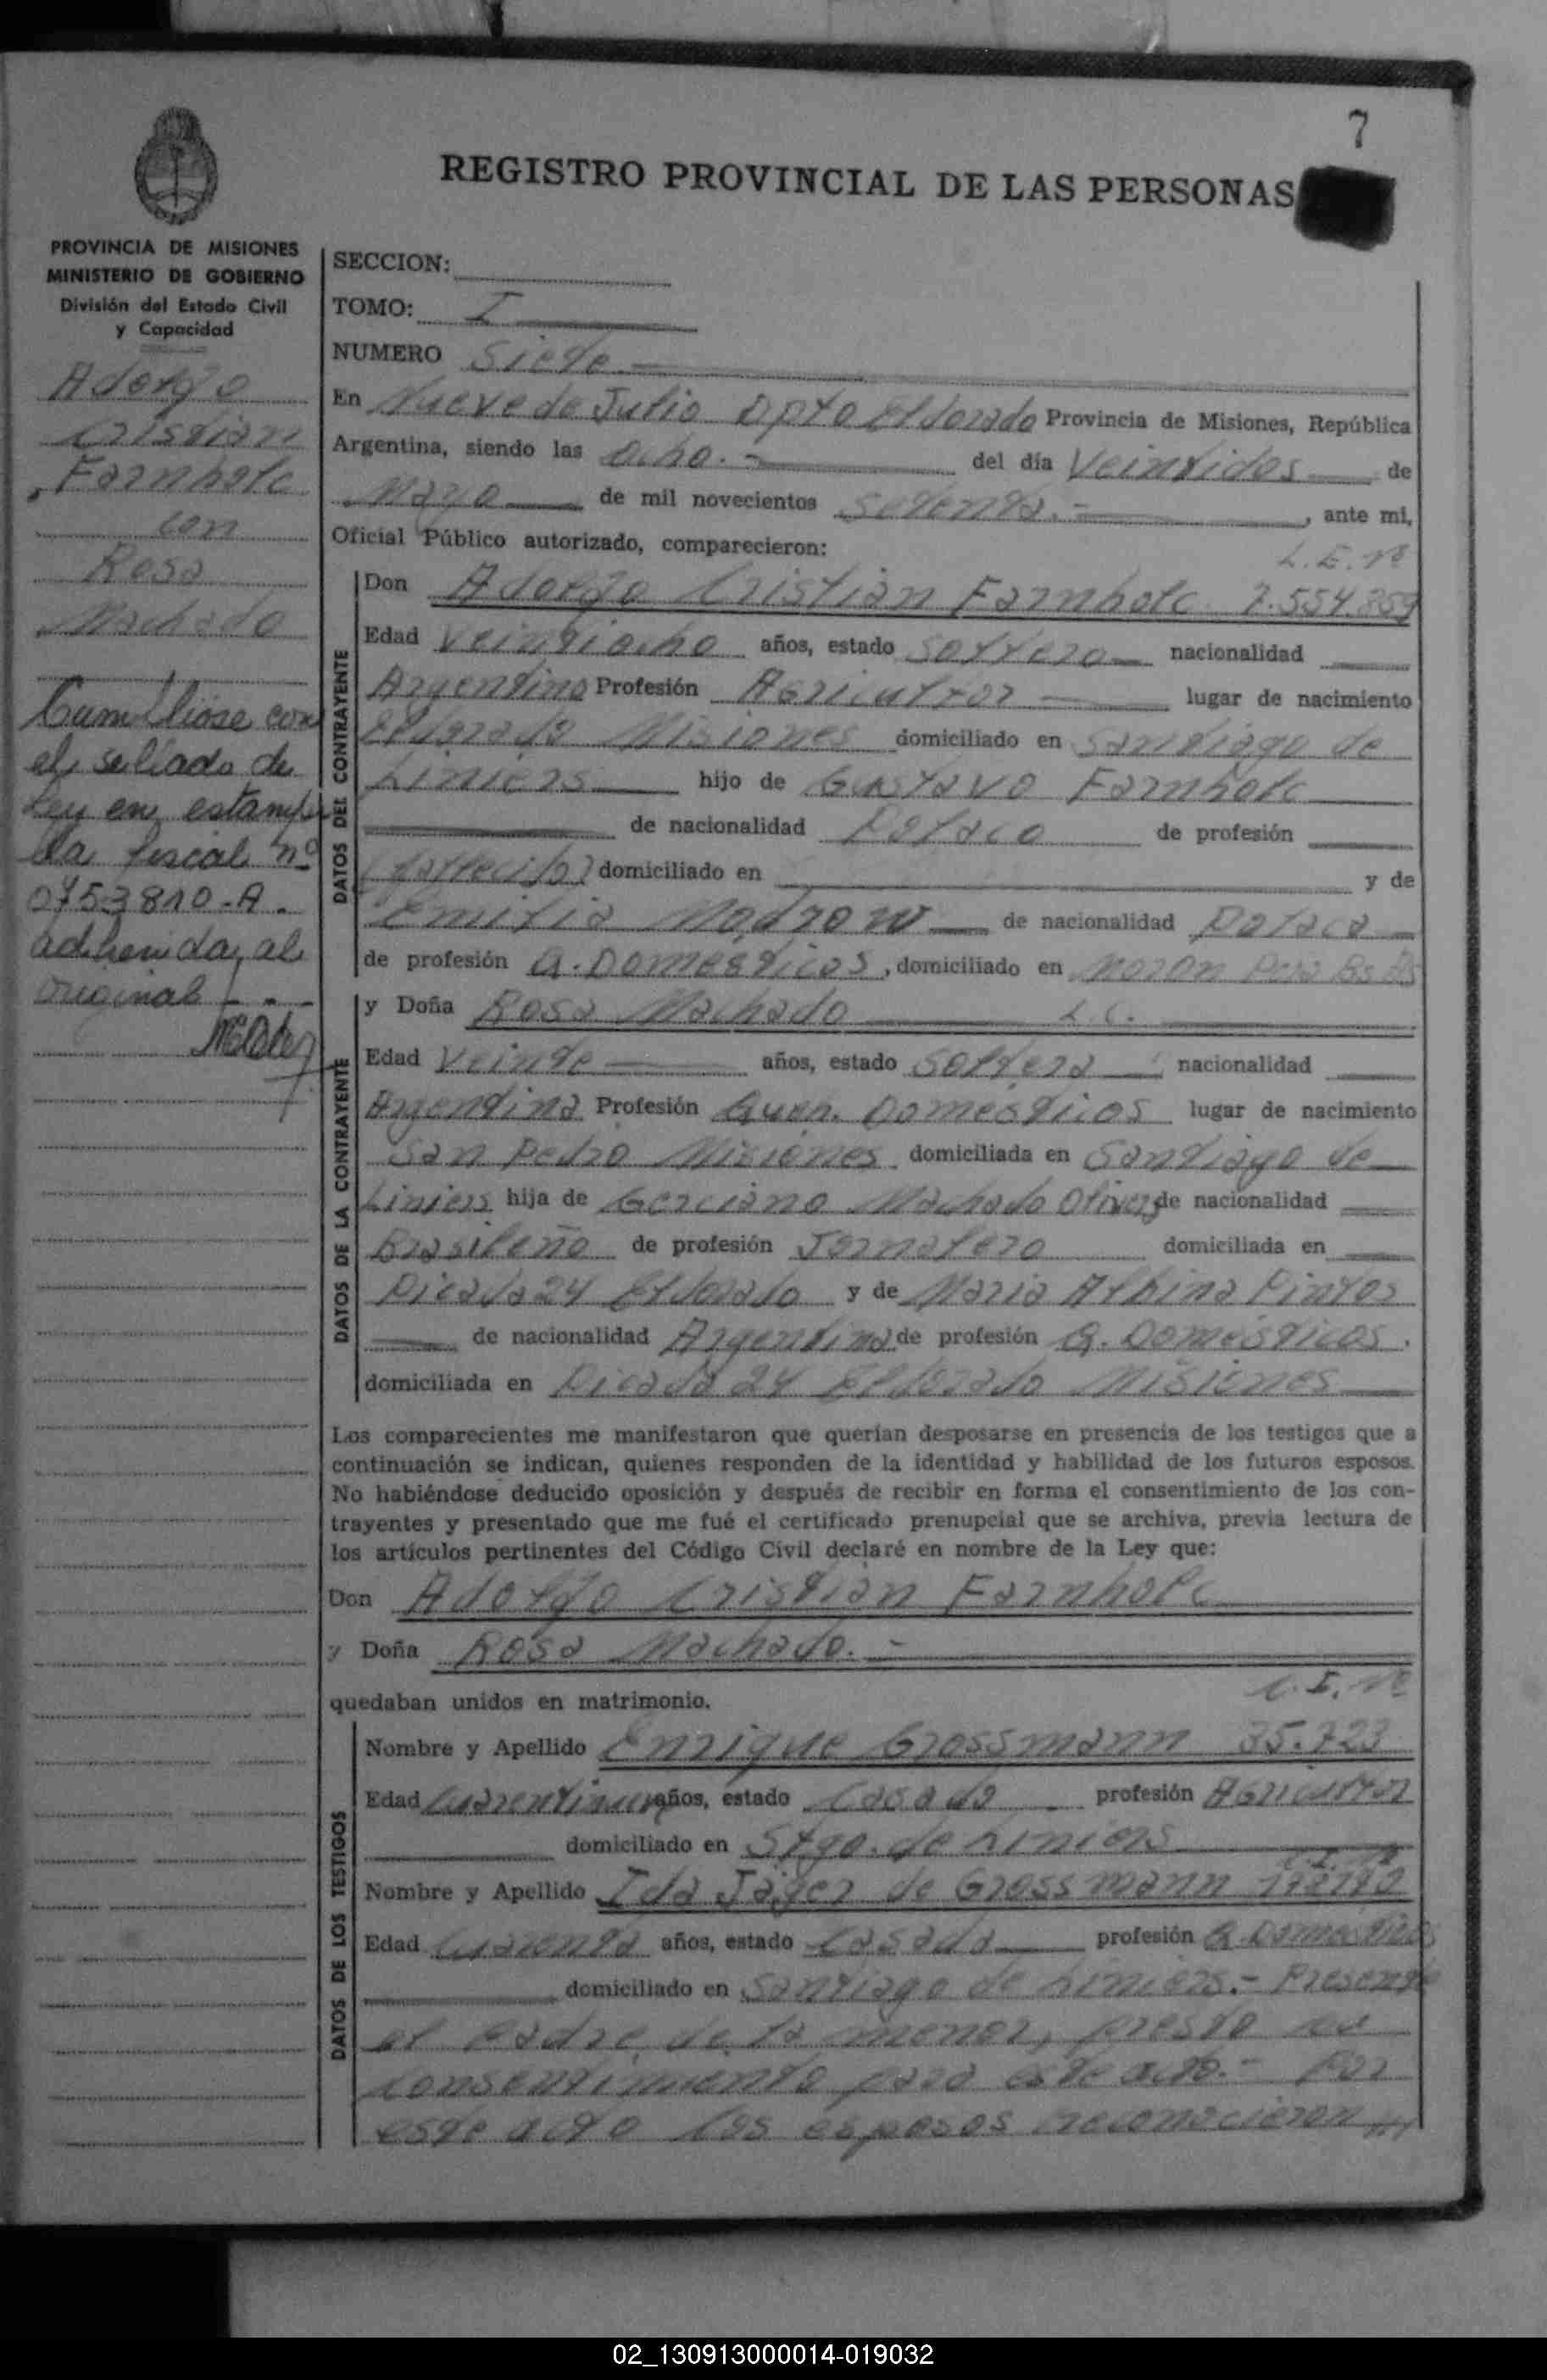 7
REGISTRO PROVINCIAL DE LAS PERSONAS
PROVINCIA DE MISIONES
MINISTERIO DE GOBIERNO
División del Estado Civil
y Capacidad
Adolfo
Cristian
Farnholc
con
Rosa
Machado
Cumpliose con
el sellado de
Ley en estampi
lla fiscal nº
0753810-A.
adherida al
original
SECCION:
TOMO: I
NUMERO Siete
En Nueve de Julio Dpto Eldorado Provincia de Misiones, República
Argentina, siendo las ocho.- del día Veintidos de
Mayo de mil novecientos setenta.- , ante mi,
Oficial Público autorizado, comparecieron:
L.E. Nº
Don Adolfo Cristian Farnholc 7.554.859
Edad Veintiocho años, estado Soltero nacionalidad
Argentino Profesión Agricultor lugar de nacimiento
Eldorado Misiones domiciliado en Santiago de
Liniers hijo de Gustavo Farnholc
de nacionalidad Polaco de profesión
(fallecido) domiciliado en y de
Emilia Modrow de nacionalidad Polaca
de profesión Q. Domesticos, domiciliado en Moron Pcia Bs As
y Doña Rosa Machado L.C.
Edad Veinte años, estado Soltera nacionalidad
Argentina Profesión Queh. Domesticos lugar de nacimiento
San Pedro Misiones domiciliada en Santiago de
Liniers hija de Gerciano Machado Olivera de nacionalidad
Brasileño de profesión Jornalero domiciliada en
Picada 24 Eldorado y de Maria Albina Pintos
de nacionalidad Argentina de profesión Q. Domésticos.
domiciliada en Picada 24 Eldorado Misiones
Los comparecientes me manifestaron que querían desposarse en presencia de los testigos que a
continuación se indican, quienes responden de la identidad y habilidad de los futuros esposos.
No habiéndose deducido oposición y después de recibir en forma el consentimiento de los con-
trayentes y presentado que me fué el certificado prenupcial que se archiva, previa lectura de
los artículos pertinentes del Código Civil declaré en nombre de la Ley que:
Don Adolfo Cristian Farnholc
y Doña Rosa Machado.-
quedaban unidos en matrimonio.
C.I. Nº
Nombre y Apellido Enrique Grossmann 35.723
Edad años, estado Casado profesión Agricultor
domiciliado en Stgo. de Liniers
C.I. Nº
Nombre y Apellido Ida Jäger de Grossmann
Edad Cuarenta años, estado Casada profesión Q. Domesticos
domiciliado en Santiago de Liniers.- Presente
el padre de la menor, presto su
consentimiento para este acto.- Por
este acto los esposos reconocieron
DATOS DEL CONTRAYENTE
DATOS DE LA CONTRAYENTE
DATOS DE LOS TESTIGOS
02_130913000014-019032